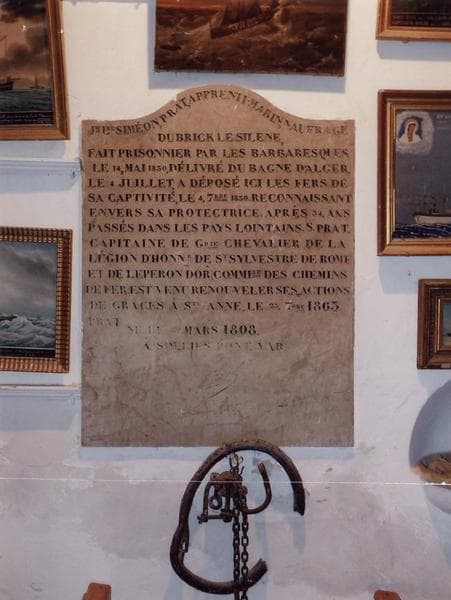 Jʰ Lˢ SIMÉON PRAT APPRENTI-MARIN NAUFRAGÉ
DU BRICK LE SILENE,
FAIT PRISONNIER PAR LES BARBARESQUES
LE 14, MAI 1830, DÉLIVRÉ DU BAGNE D'ALGER,
LE 4 JUILLET, A DÉPOSÉ ICI LES FERS DE
SA CAPTIVITÉ, LE 4, 7ᴮᴿᴱ 1830. RECONNAISSANT
ENVERS SA PROTECTRICE. APRÈS 34, ANS
PASSÉS DANS LES PAYS LOINTAINS. S. PRAT,
CAPITAINE DE Gᴿᴵᴱ CHEVALIER DE LA
LÉGION D'HONNᴿ DE Sᵀ SYLVESTRE DE ROME
ET DE L'EPERON D'OR, COMMᴿᴱ DES CHEMINS
DE FER, EST VENU RENOUVELER SES, ACTIONS
DE GRACES À Sᵀᴱ ANNE, LE 7ᴮᴿᴱ 1865
PRAT
NE LE MARS 1808
A SOLLIES PONT VAR